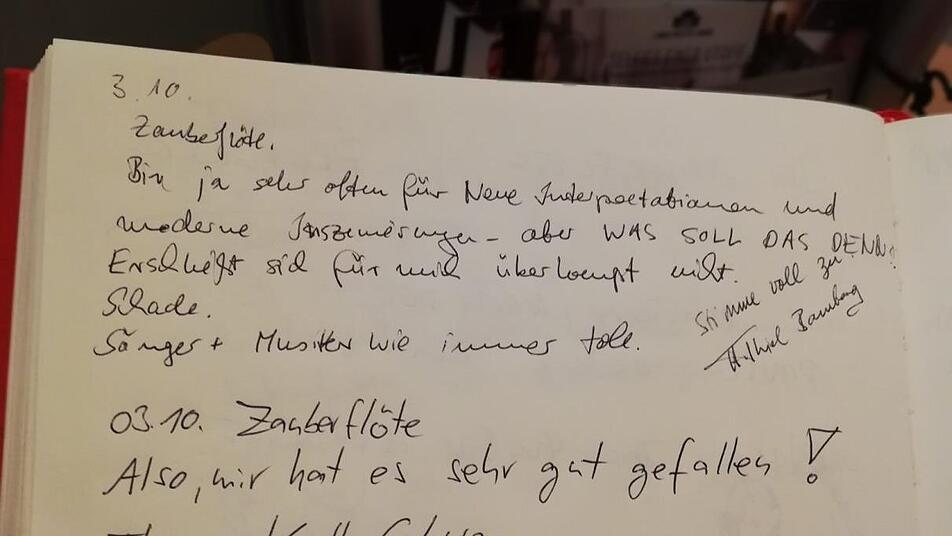 3.10.
Zauberflöte.
Bin ja sehr offen für Neue Interpretationen und
moderne Inszenierungen - aber WAS SOLL DAS DENN?
Erschließt sich für mich überhaupt nicht.
Schade.
Sänger + Musiker wie immer toll.
Stimme voll zu
Thiel Bamberg
03.10. Zauberflöte
Also, mir hat es sehr gut gefallen!